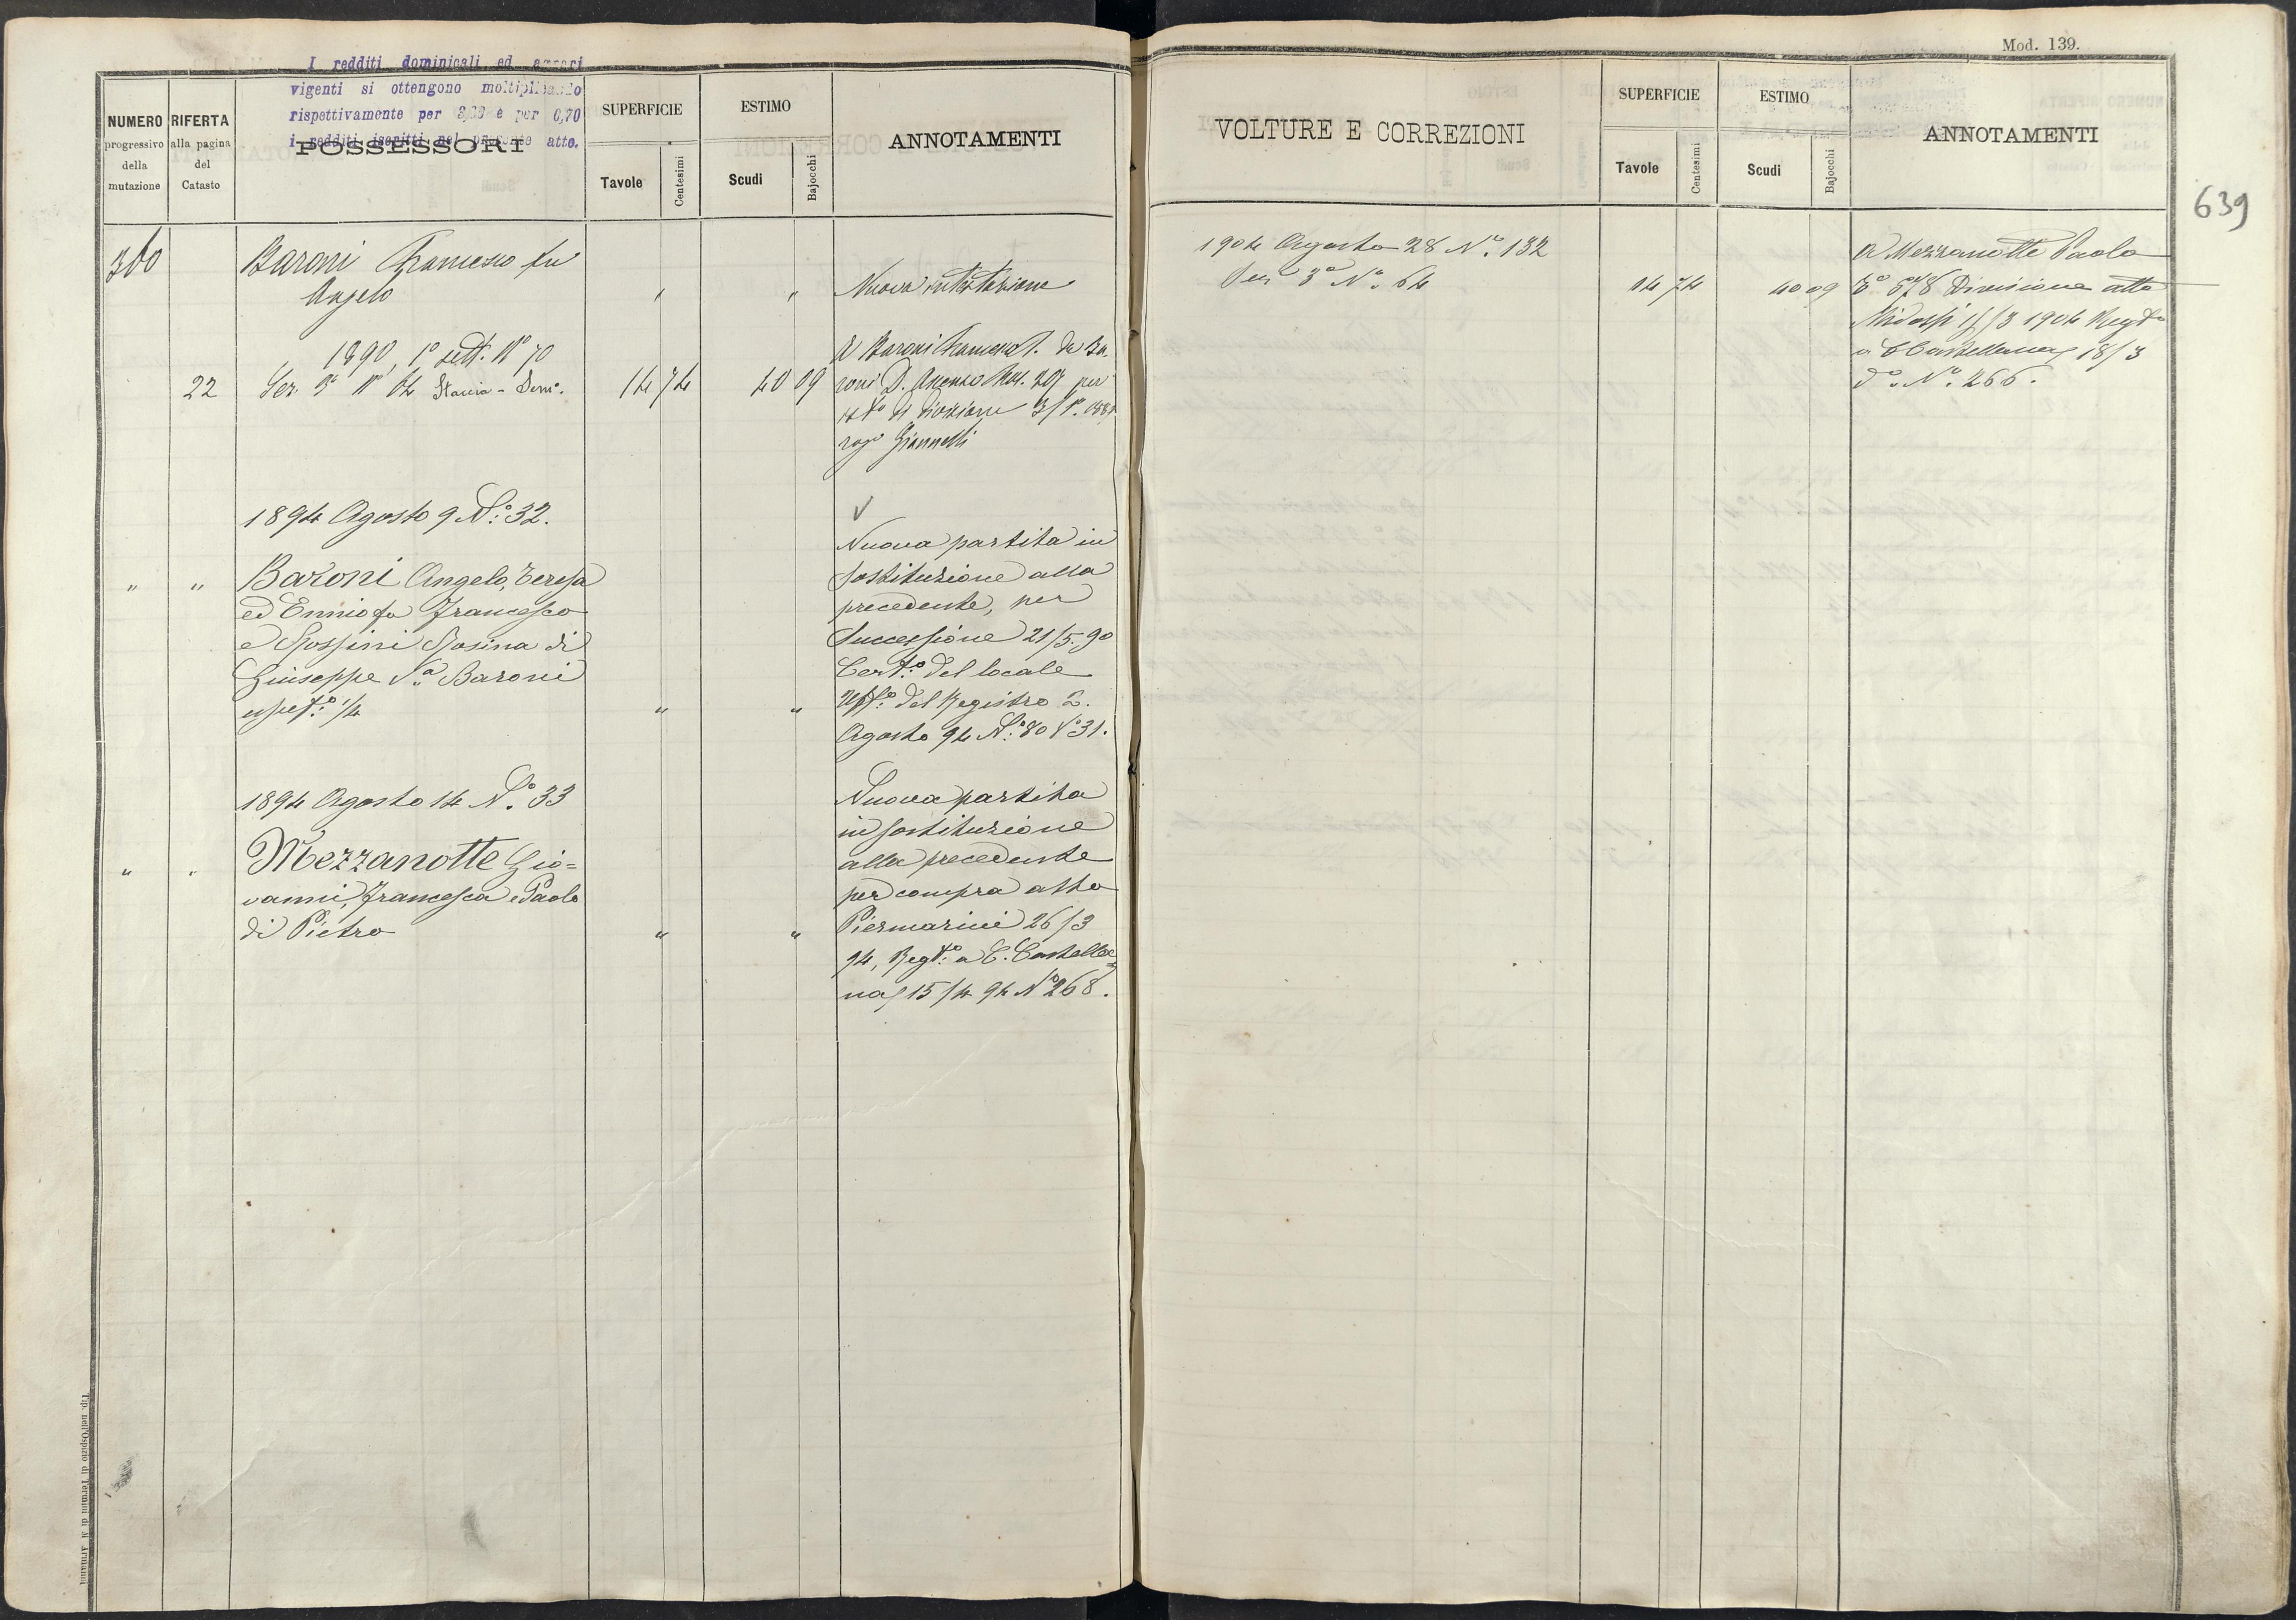 I redditi dominicali ed agrari
vigenti si ottengono moltiplicando
rispettivamente per e per 0,70
i redditi iscritti nel presente atto.
NUMERO
progressivo
della
mutazione
RIFERTA
alla pagina
del
Catasto
POSSESSORI
SUPERFICIE
Tavole
Centesimi
ESTIMO
Scudi
Bajocchi
ANNOTAMENTI
360
Baroni Francesco fu
Angelo
" "
Nuova intestazione
1890, 1° sett. N° 70
22 Sez. 3ª N° 64 Staccia - Sem°. 14 74 40 09
Da Baroni Francesco da Ba
roni D. per
di divisione
rogo Giannelli
1894 Agosto 9 N.° 32.
" " Baroni Angelo, Teresa
ed Ennio fu Francesco
e Rossini Rosina di
Giuseppe V.ª Baroni
usuf.° 1/4 " "
Nuova partita in
sostituzione alla
precedente, per
successione 21/5-90
Cert.° del locale
Uff.° del Registro 2.
Agosto 94 N.° 80 V° 31.
1894 Agosto 14 N.° 33
" " Mezzanotte Gio=
vanni, Francesca e Paolo
di Pietro " "
Nuova partita
in sostituzione
alla precedente
per compra atto
Piermarini 26/3
94, Regt.° a C. Castella=
na, 15/4 94 N° 268.
Tip. nell'Ospizio di Termini di N. Armanni
Mod. 139.
VOLTURE E CORREZIONI
SUPERFICIE
Tavole
Centesimi
ESTIMO
Scudi
Bajocchi
ANNOTAMENTI
639
1904 Agosto 28 N.° 132
Sez 3ª N.° 64 14 74 40 09
A Mezzanotte Paolo
578 Divisione atto
Midossi 1904 Regt°
a C Castellana, 18/3
d.° N.° 266.